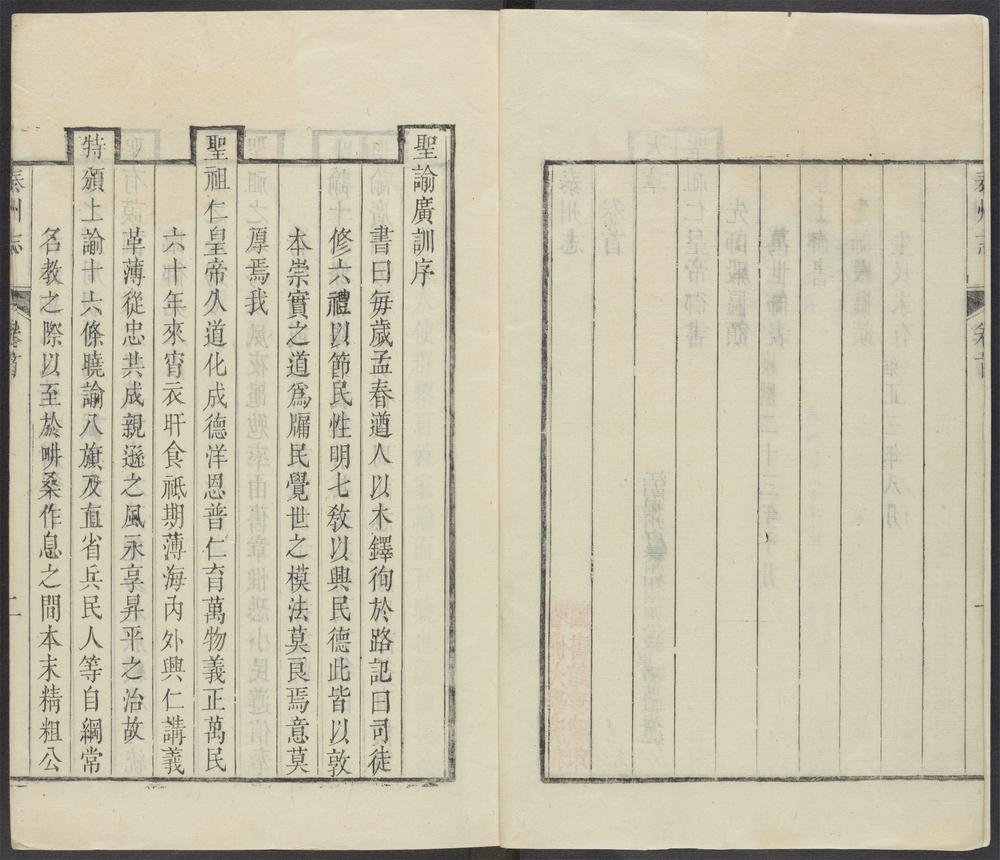 聖諭廣訓序
書曰每歲孟春遒人以木鐸徇於路記曰司徒
修六禮以節民性明七敎以興民德此皆以敦
本崇實之道爲牖民覺世之模法莫良焉意莫
厚焉我
聖祖仁皇帝久道化成德洋恩普仁育萬物義正萬民
六十年來宵衣旰食祇期薄海內外興仁講義
革薄從忠共成親遜之風永享昇平之治故
特頒上諭十六條曉諭八旗及直省兵民人等自綱常
名教之際以至於畊桑作息之間本末精粗公
泰州志
卷首
二